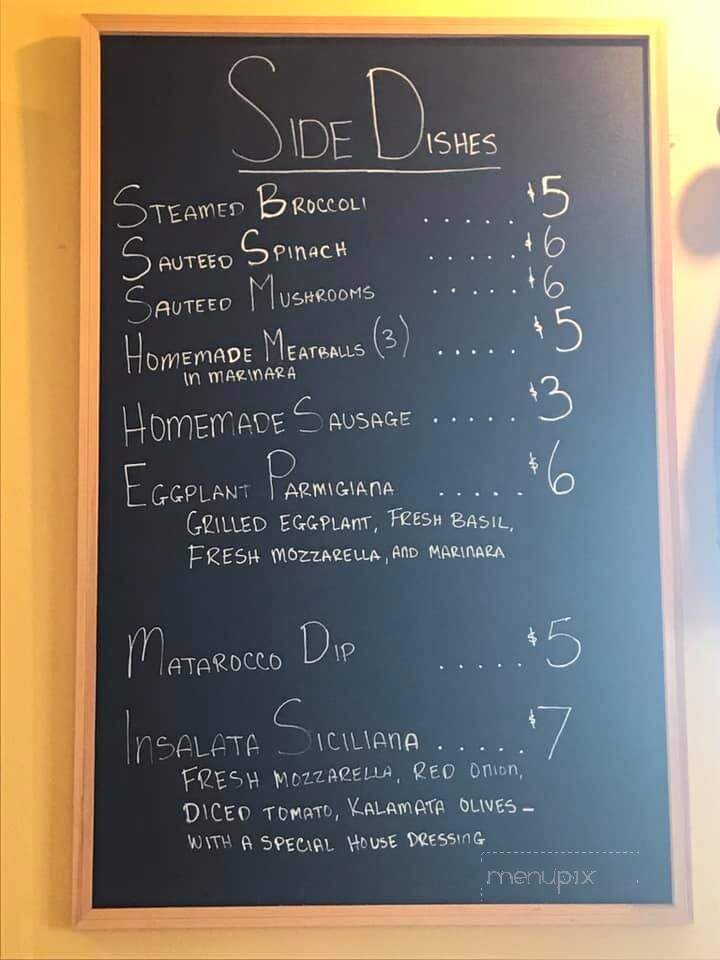 SIDE DISHES
STEAMED BROCCOLI ..... $5
SAUTEED SPINACH ..... $6
SAUTEED MUSHROOMS ..... $6
HOMEMADE MEATBALLS (3) ..... $5
IN MARINARA
HOMEMADE SAUSAGE ..... $3
EGGPLANT PARMIGIANA ..... $6
GRILLED EGGPLANT, FRESH BASIL,
FRESH MOZZARELLA, AND MARINARA
MATAROCCO DIP ..... $5
INSALATA SICILIANA ..... $7
FRESH MOZZARELLA, RED ONION,
DICED TOMATO, KALAMATA OLIVES –
WITH A SPECIAL HOUSE DRESSING
menupix